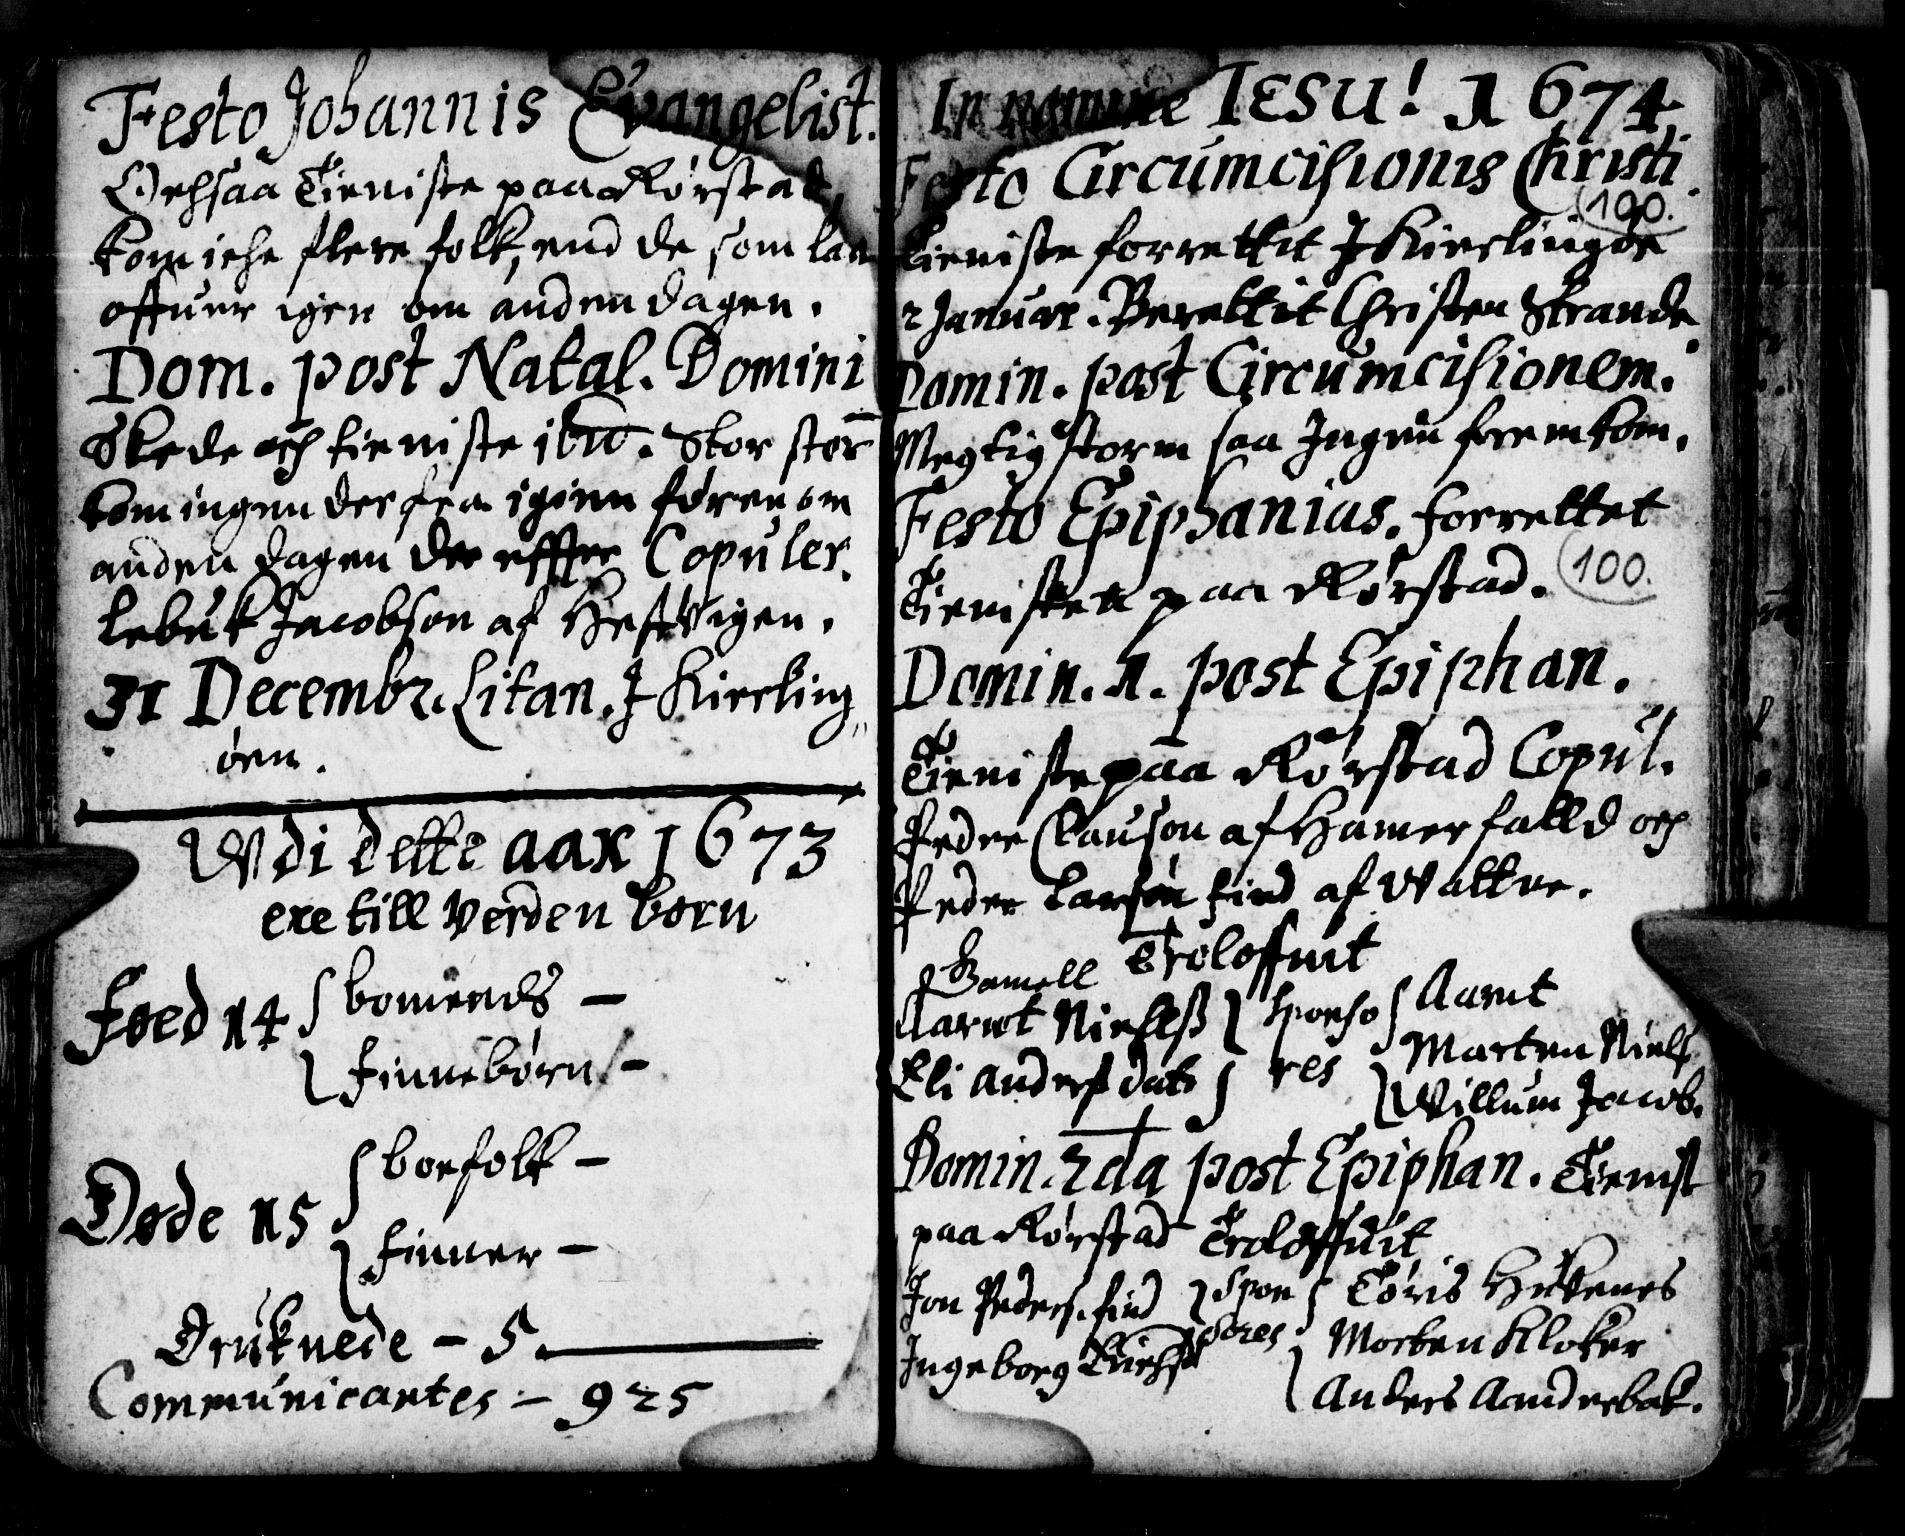 Festo Johannis Evangelist.
Ochsaa Tieniste paa Rørstad,
kom iche flere folk, end de som laa
offuer igen om anden dagen.
Dom. post Natal. Domini
Skede och tieniste ibid. Stor storm
kom ingen der fra igien føren om
anden dagen der effter Copuler.
Lebuk Jacobson af Hestvigen.
31 Decembr. Litan. J Kierling„
øen.
Wdi dette aar 1673
ere till Verden born
Føed 14 { bomends –
{ finnebørn –
Døde 15 { boefolk –
{ finner –
Druknede – 5.
Communicantes – 925
In nomine IESU! 1674.
Festo Circumcisionis Christi.
100.
Tieniste forrettit J Kierlingøe
2 Januar. Berettit Christen Strande.
Domin. post Circumcisionem.
Megtig storm saa Ingen frem kom.
Festo Epiphanias. forrettet
Tienisten paa Rørstad.
100.
Domin. 1. post Epiphan.
Tieniste paa Rørstad Copul.
Peder Clauson af Hamerfalld och
Peder Larsøn find af Valkue.
Gamell Troloffuit
Aarnt Nielss } Sponso { Aarnt
Eli Anders dat. } res { Morten Niels.
Willum Jacob.
Domin. 2da post Epiphan. Tienist
paa Rørstad Troloffuit
Jon Peders. find } Spon { Tøris Husenes
Ingeborg } sores { Morten Kloker
Anders Aanderbak.